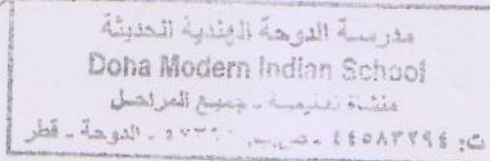 مدرسة الدوحة الهندية الحديثة
Doha Modern Indian School
منشأة تعليمية - جميع المراحل
ت: ٤٤٥٨٣٢٩٤ - ص.ب. - الدوحة - قطر